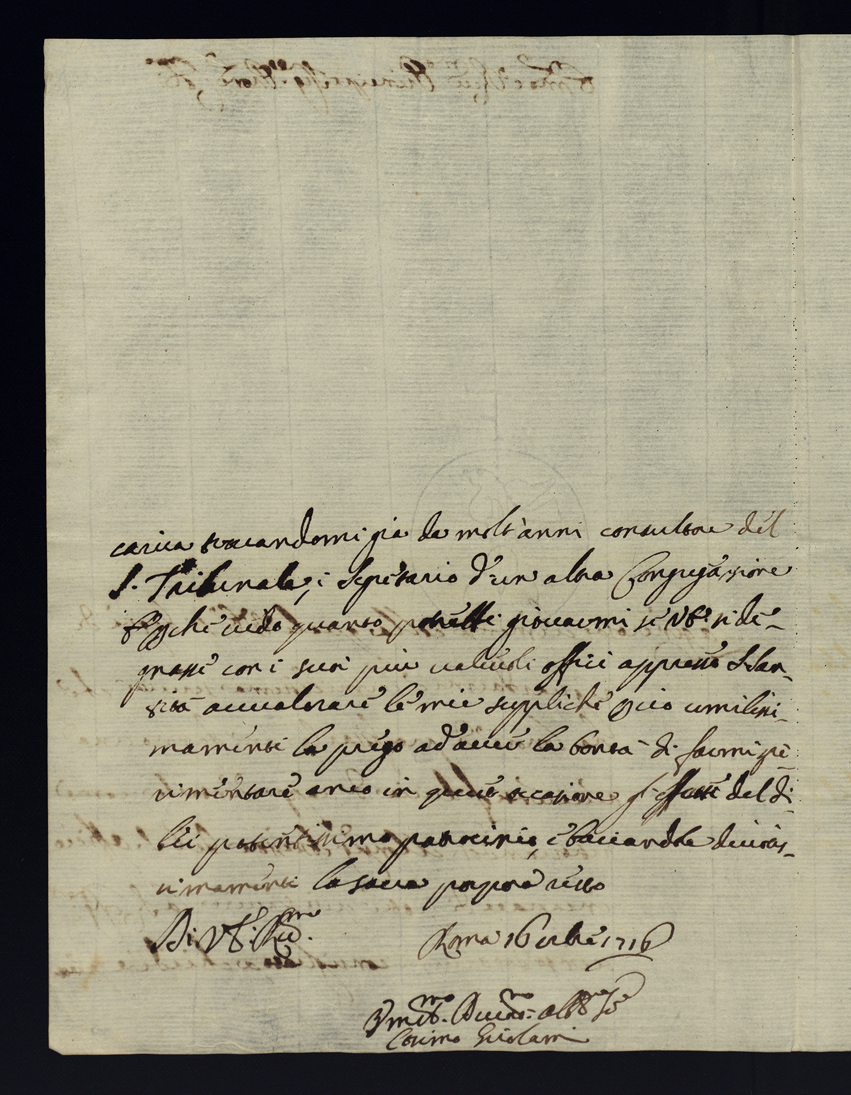 carica trovandomi già da molt'anni consultore del
S. Tribunale, e Segretario d'un altra Congregazione
E perche vedo quanto potrebbe giovarmi se V. E. si de-
gnasse con i suoi più valevoli offici appresso S. San-
tità avvalorare le mie suppliche perciò umilissi-
mamente la prego ad aver la bontà di farmi spe-
rimentare anco in questa occasione gl'effetti del di
lei potentissimo patrocinio, e baciandole divotis-
simamente la sacra porpora resto
Di V. E. Rma.
Roma 16 1716
Umo. Devmo. 
Cosimo Girolami